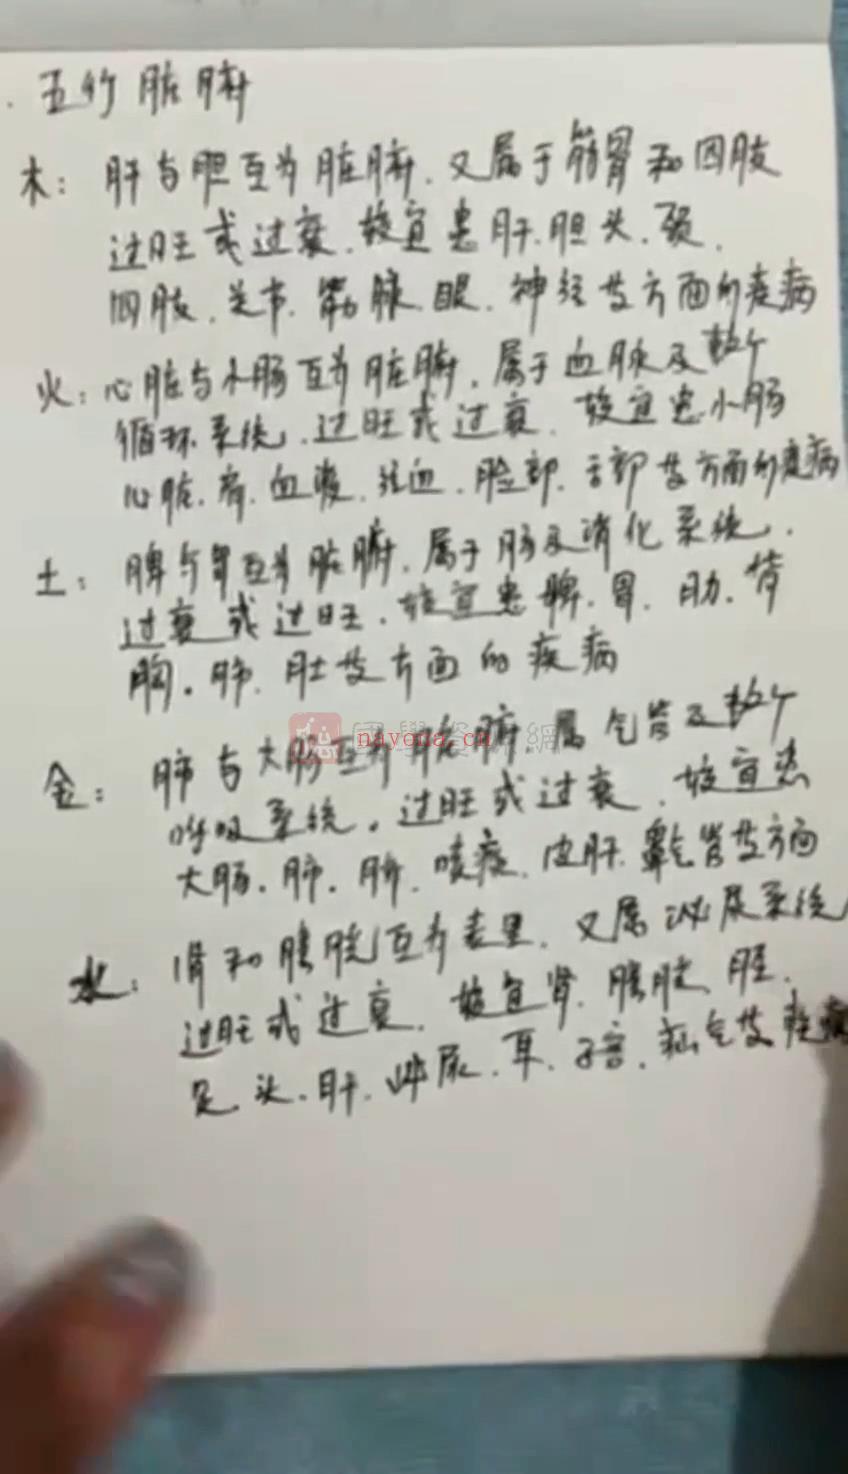 五行脏腑
木：肝与胆互为脏腑．又属于筋骨和四肢
过旺或过衰．较宜患肝．胆头．颈．
四肢．关节．筋脉．眼．神经等方面的疾病
火：心脏与小肠互为脏腑．属于血脉及整个
循环系统．过旺或过衰．较宜患小肠
心脏．肩．血液．经血．脸部．舌部等方面的疾病
土：脾与胃互为脏腑．属于肠及消化系统．
过衰或过旺．较宜患脾．胃．肋．背
胸．肺．肚等方面的疾病
國學 網
nayona.cn
金：肺与大肠互为脏腑．属气管及整个
呼吸系统．过旺或过衰．较宜患
大肠．肺．脐．咳痰．皮肝．气管等方面
水：肾和膀胱互为表里．又属泌尿系统
过旺或过衰．较宜肾．膀胱．胫．
足．头．肝．尿．耳．子宫．疝气等疾病